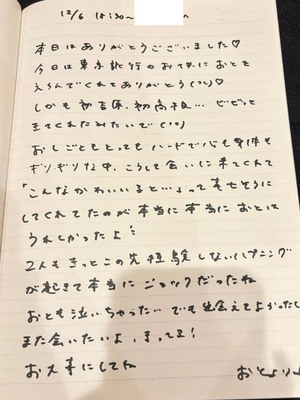 12/6 18:30〜
本日はありがとうございました♡
今日は東京旅行のおでかけにおとを
えらんでくれてありがとう(つω;)
しかも初吉原、初高級… ビビッと
きてくれたみたいで(つω;)
おしごともとってもハードで心も身体も
ギリギリな中、こうして会いに来てくれて
「こんなかわいい子と…」って幸せそうに
してくれてたのが本当に本当におとは
うれしかったよ
2人もきっとこの先経験しないハプニング
が起きて本当に だったね
おとも泣いちゃった… でも出会えてよかったし
また会いたいよ、まってる!
お大事にしてね
おとより